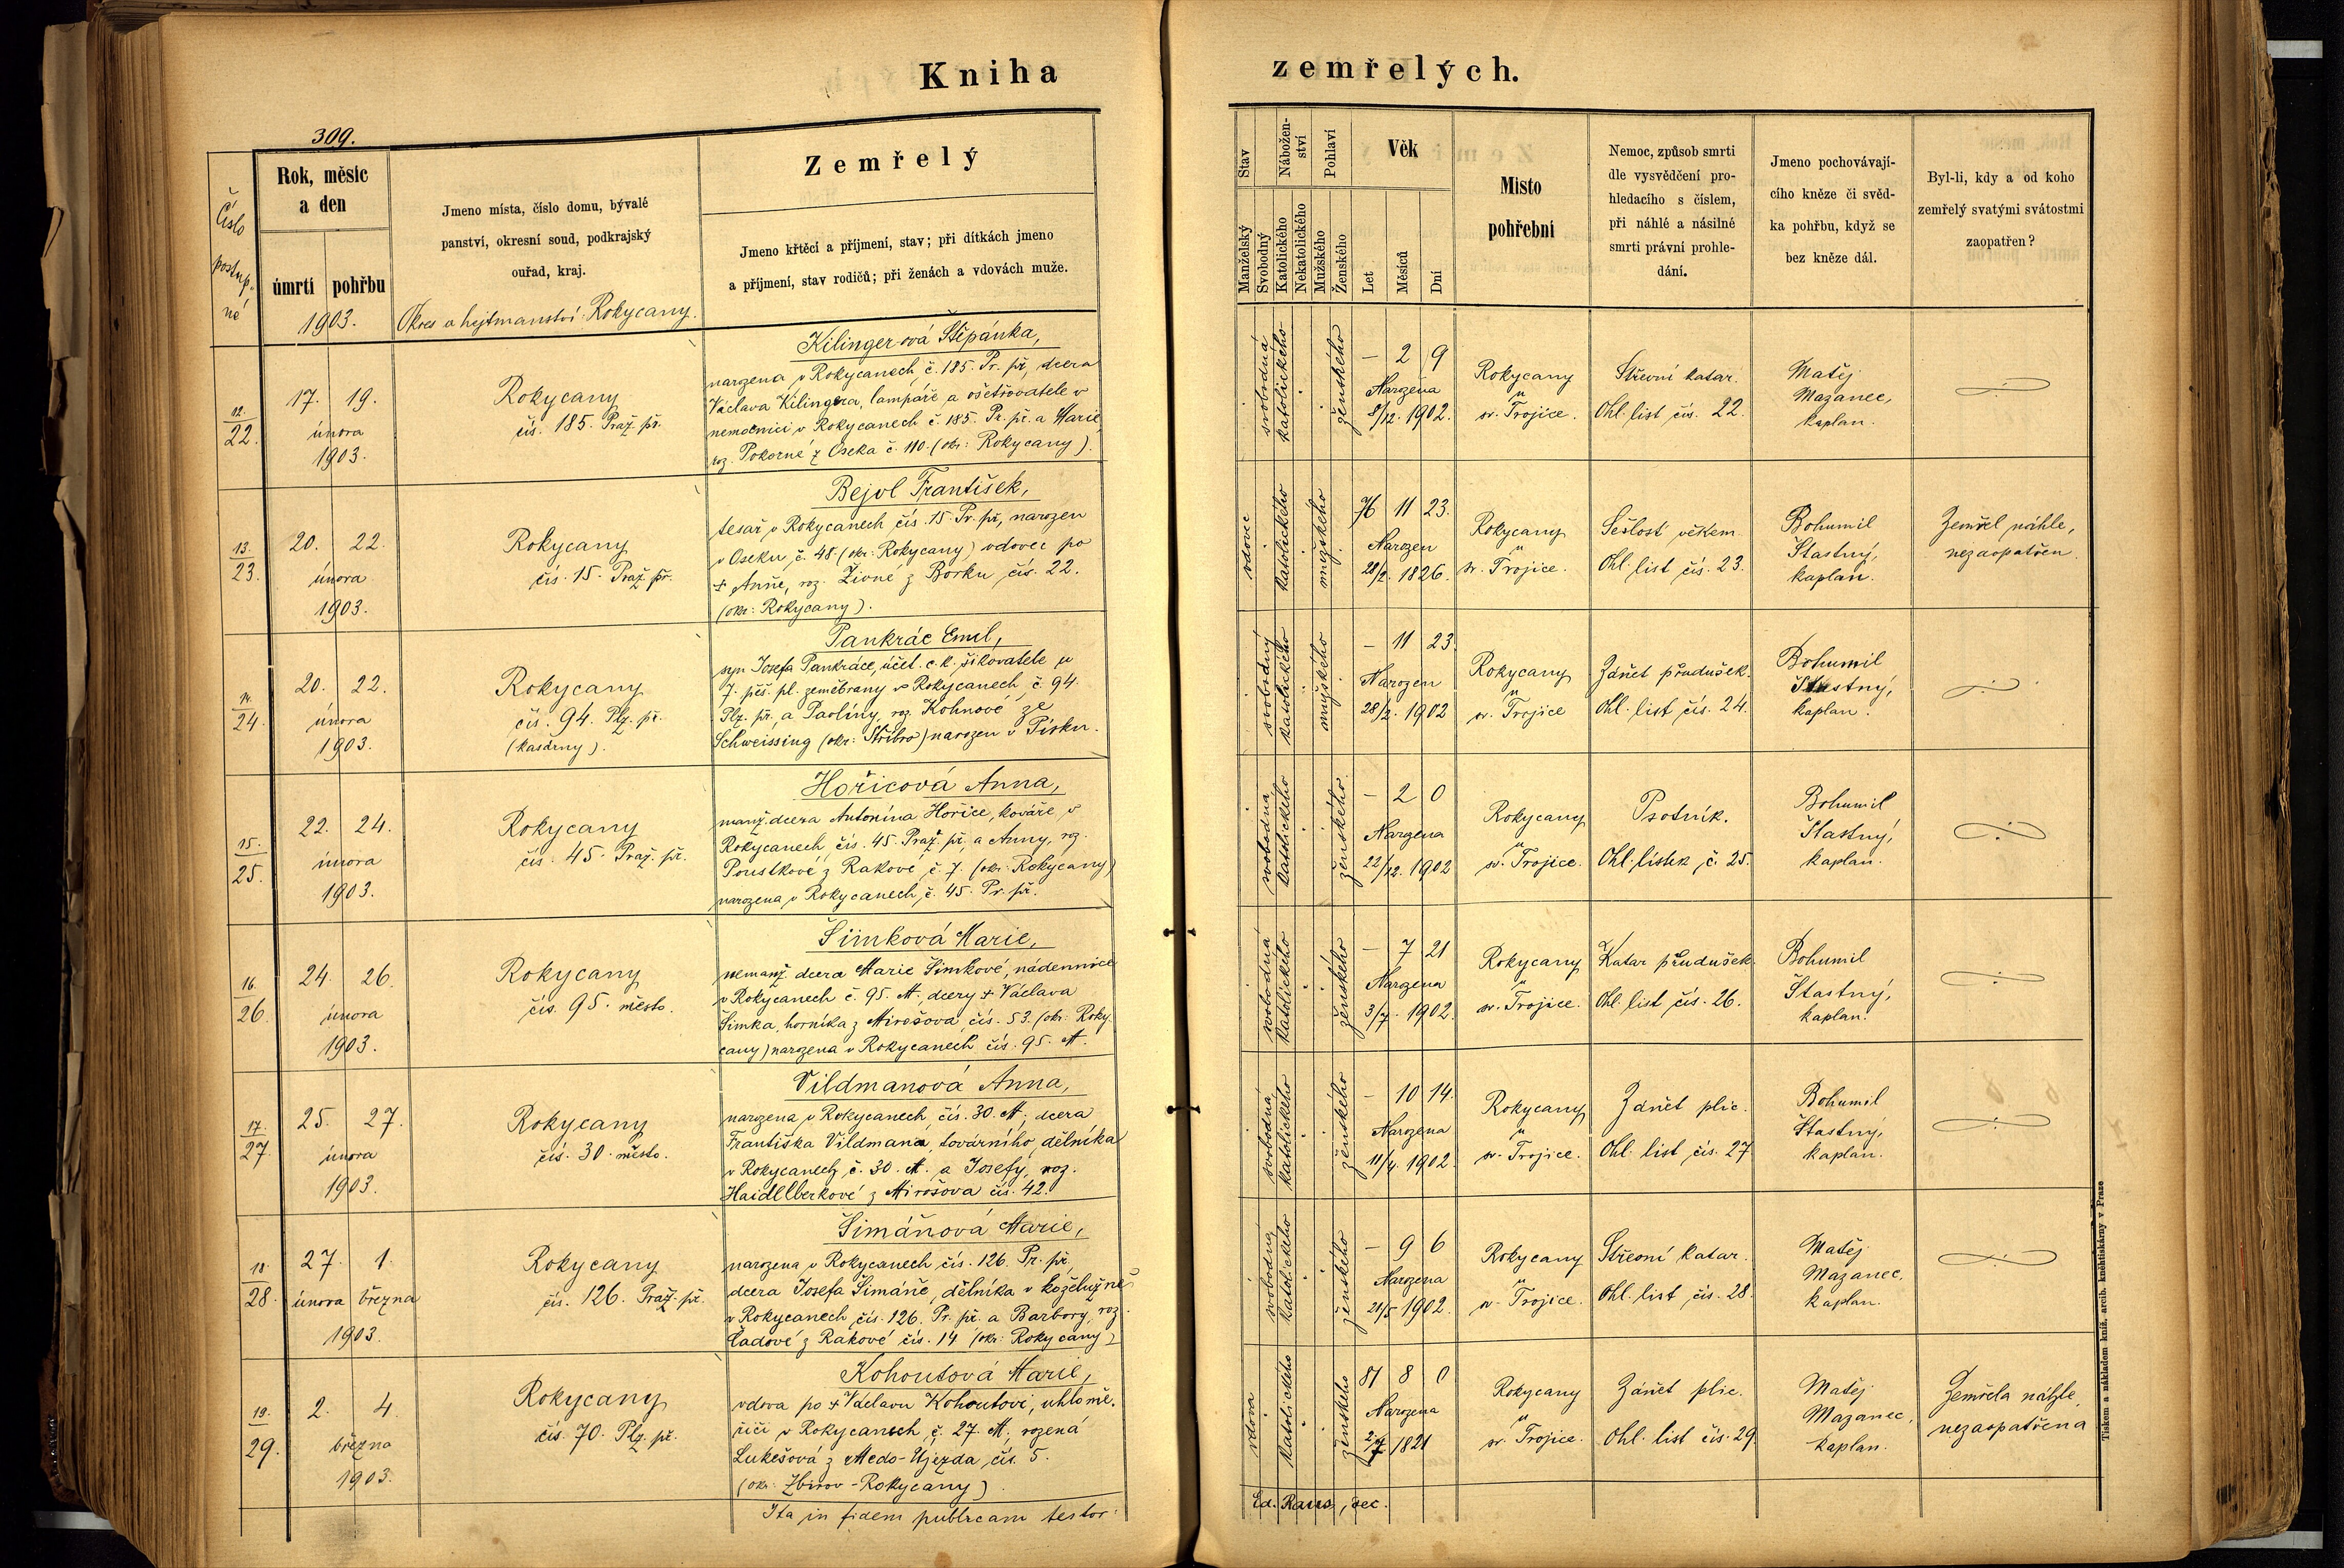 Kniha
zemřelých.
309.
Číslo
postup-
né
Rok, měsíc
a den
úmrtí
pohřbu
1903.
Jmeno místa, číslo domu, bývalé
panství, okresní soud, podkrajský
ouřad, kraj.
Okres a hejtmanství: Rokycany.
Zemřelý
Jmeno křtěcí a příjmení, stav; při dítkách jmeno
a příjmení, stav rodičů; při ženách a vdovách muže.
Stav
Manželský
Svobodný
Nábožen-
ství
Katolického
Nekatolického
Pohlaví
Mužského
Ženského
Věk
Let
Měsíců
Dní
Místo
pohřební
Nemoc, způsob smrti
dle vysvědčení pro-
hledacího s číslem,
při náhlé a násilné
smrti právní prohle-
dání.
Jmeno pochovávají-
cího kněze či svěd-
ka pohřbu, když se
bez kněze dál.
Byl-li, kdy a od koho
zemřelý svatými svátostmi
zaopatřen?
12.
22.
17. 19.
února
1903.
Rokycany
čís. 185. Praž. př.
Kilinger-ová Štěpánka,
narozena v Rokycanech, č. 185. Pr. př., dcera
Václava Kilingera, lampáře a ošetřovatele v
nemocnici v Rokycanech č. 185. Pr. př. a Marie,
roz. Pokorné z Oseka č. 110. (okr: Rokycany).
svobodná
katolického
ženského
— 2 9
Narozena
8/12. 1902.
Rokycany
u
sv. Trojice.
Střevní katar.
Ohl. list čís. 22.
Matěj
Mazanec,
kaplan.
13.
23.
20. 22.
února
1903.
Rokycany
čís. 15. Praž. př.
Bejvl František,
tesař v Rokycanech čís. 15. Pr. př., narozen
v Oseku č. 48. (okr: Rokycany) vdovec po
+ Anně, roz. Živné z Borku čís. 22.
(okr: Rokycany).
vdovec
katolického
mužského
76 11 23.
Narozen
28/2. 1826.
Rokycany
u
sv. Trojice.
Sešlost věkem.
Ohl. list čís. 23.
Bohumil
Šťastný,
kaplan.
Zemřel náhle,
nezaopatřen.
14.
24.
20. 22.
února
1903.
Rokycany
čís. 94. Plz. př.
(kasárny).
Pankrác Emil,
syn Josefa Pankráce, účet. c. k. šikovatele u
7. pěš. pl. zeměbrany v Rokycanech, č. 94.
Plz. př. a Paolíny, roz. Kohnové ze
Schweissing (okr: Stříbro) narozen v Písku.
svobodný
katolického
mužského
— 11 23.
Narozen
28/2. 1902
Rokycany
u
sv. Trojice
Zánět průdušek.
Ohl. list čís. 24.
Bohumil
Šťastný,
kaplan.
15.
25.
22. 24.
února
1903.
Rokycany
čís. 45. Praž. př.
Hořicová Anna,
manž. dcera Antonína Hořice, kováře v
Rokycanech, čís. 45. Praž. př. a Anny, roz.
Poustkové z Rakové, č. 7. (okr: Rokycany)
narozena v Rokycanech, č. 45. Pr. př.
svobodná
katolického
ženského
— 2 0
Narozena
22/12. 1902
Rokycany
u
sv. Trojice.
Psotník.
Ohl. lístek č. 25.
Bohumil
Šťastný,
kaplan.
16.
26.
24. 26.
února
1903.
Rokycany
čís. 95. město.
Šimková Marie,
nemanž. dcera Marie Šimkové, nádennice
v Rokycanech č. 95. M., dcery + Václava
Šimka, horníka z Mirošova, čís. 53. (okr: Roky-
cany) narozena v Rokycanech čís. 95. M.
svobodná
katolického
ženského
— 7 21
Narozena
3/7. 1902.
Rokycany
u
sv. Trojice.
Katar průdušek.
Ohl. list čís. 26.
Bohumil
Šťastný,
kaplan.
17.
27.
25. 27.
února
1903.
Rokycany
čís. 30. město.
Vildmanová Anna,
narozena v Rokycanech, čís. 30. M., dcera
Františka Vildmana, továrního dělníka
v Rokycanech, č. 30. M. a Josefy, roz.
Haidllberkové z Mirošova čís. 42.
svobodná
katolického
ženského
— 10 14.
Narozena
11/4. 1902.
Rokycany
u
sv. Trojice.
Zánět plic.
Ohl. list čís. 27.
Bohumil
Šťastný,
kaplan.
18.
28.
27. 1.
února března
1903.
Rokycany
čís. 126. Praž. př.
Šimáňová Marie,
narozena v Rokycanech čís. 126. Pr. př.,
dcera Josefa Šimáně, dělníka v koželužně
v Rokycanech, čís. 126. Pr. př. a Barbory, roz.
Čadové z Rakové čís. 14 (okr: Rokycany)
svobodná
katolického
ženského
— 9 6
Narozena
21/5 1902.
Rokycany
u
sv. Trojice.
Střevní katar.
Ohl. list čís. 28.
Matěj
Mazanec,
kaplan.
19.
29.
2. 4.
března
1903.
Rokycany
čís. 70. Plz. př.
Kohoutová Marie,
vdova po + Václavu Kohoutovi, uhloměřiči
v Rokycanech, č. 27. M., rozená
Lukešová z Medo-Újezda, čís. 5.
(okr: Zbirov-Rokycany)
vdova
katolického
ženského
81 8 0
Narozena
2/7 1821
Rokycany
u
sv. Trojice.
Zánět plic.
Ohl. list čís. 29.
Matěj
Mazanec,
kaplan.
Zemřela náhle,
nezaopatřena
Ita in fidem publicam testor:
Ed. Raus, dec.
Tiskem a nákladem kníž. arcib. kněhtiskárny v Praze